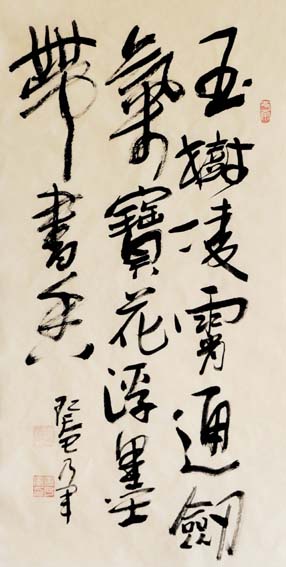 玉樹凌霄通劍
氣寶花浮墨
帶書香